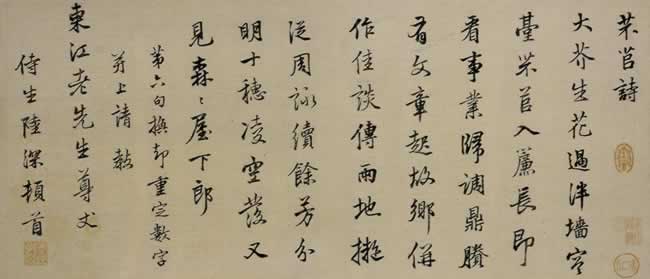 芣苢詩
大芥生花過泮墻宮
臺芣苢入簾長即
看事業歸調鼎賸
有文章起故鄉併
作佳談傳兩地擬
從周詠續餘芳分
明十穗凌空發又
見森〻屋下郎
第六句換却重定數字
并上請教
東江老先生尊丈
侍生陸深頓首